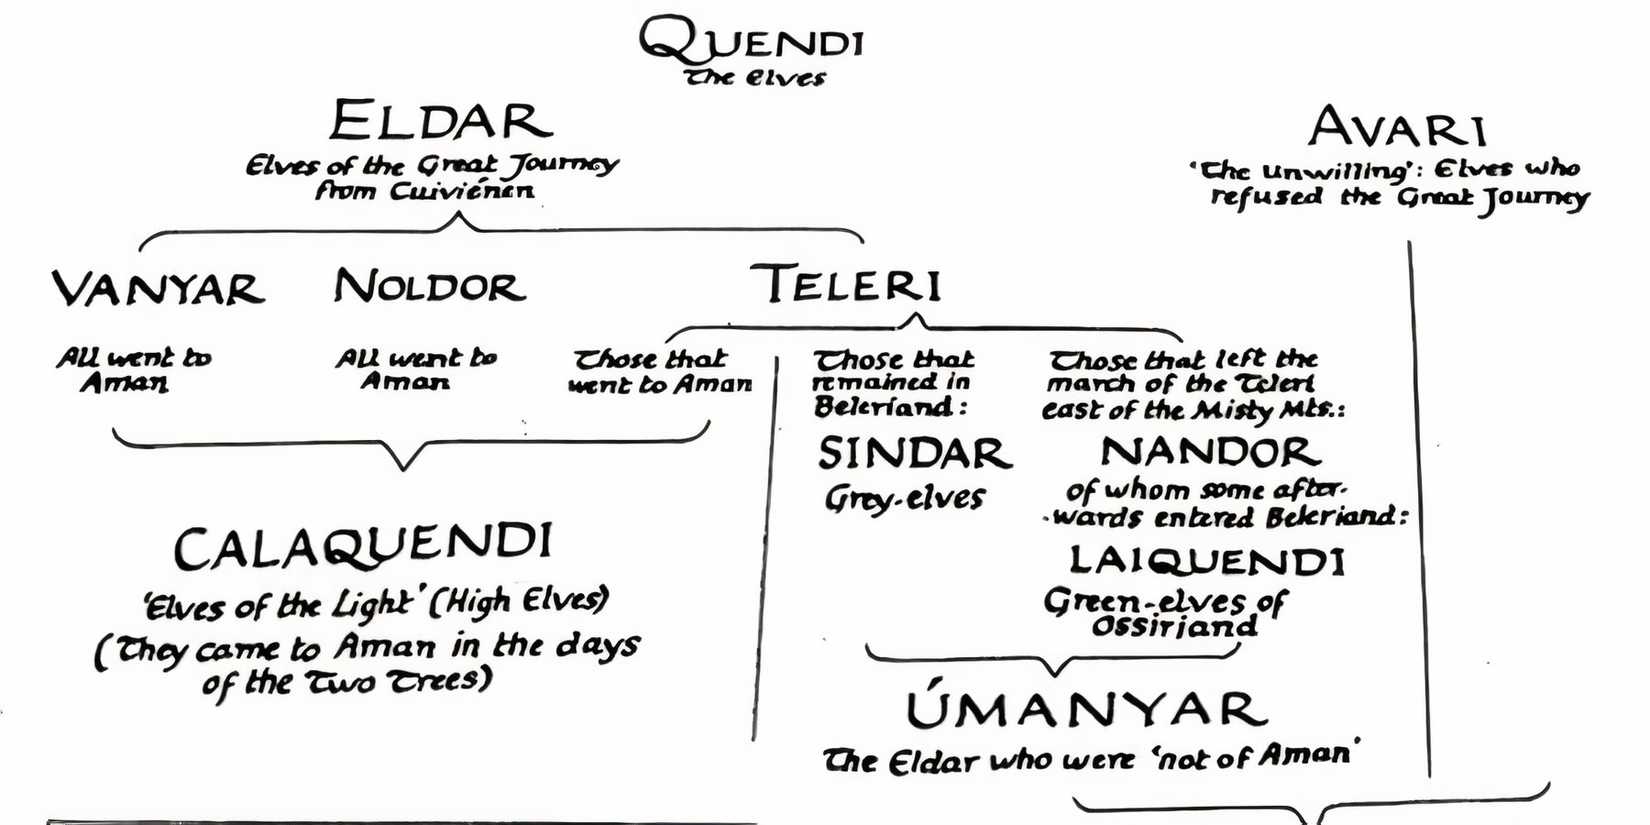 QUENDI
The Elves
ELDAR
Elves of the Great Journey
from Cuiviénen
AVARI
'The Unwilling': Elves who
refused the Great Journey
VANYAR
NOLDOR
TELERI
All went to
Aman
All went to
Aman
Those that
went to Aman
Those that
remained in
Beleriand:
SINDAR
Grey-elves
Those that left the
march of the Teleri
east of the Misty Mts.:
NANDOR
of whom some after-
-wards entered Beleriand:
LAIQUENDI
Green-elves of
Ossiriand
CALAQUENDI
'Elves of the Light' (High Elves)
(They came to Aman in the days
of the Two Trees)
ÚMANYAR
The Eldar who were 'not of Aman'